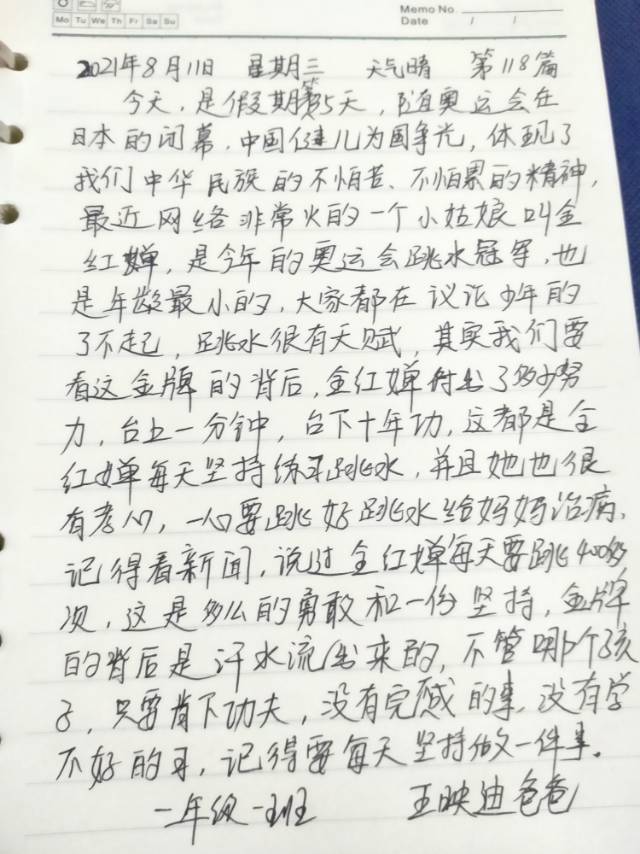 Memo No.
Mo Tu We Th Fr Sa Su
Date / /
2021年8月11日 星期三 天气晴 第118篇
今天，是假期第35天，随奥运会在
日本的闭幕，中国健儿为国争光，体现了
我们中华民族的不怕苦、不怕累的精神，
最近网络非常火的一个小姑娘叫全
红婵，是今年的奥运会跳水冠军，也
是年龄最小的，大家都在议论少年的
了不起，跳水很有天赋，其实我们要
看这金牌的背后，全红婵付出了多少努
力，台上一分钟，台下十年功，这都是全
红婵每天坚持练习跳水，并且她也很
有孝心，一心要跳好跳水给妈妈治病，
记得看新闻，说过全红婵每天要跳400多
次，这是多么的勇敢和一份坚持，金牌
的背后是汗水流出来的，不管哪个孩
子，只要肯下功夫，没有完成的事，没有学
不好的习，记得要每天坚持做一件事。
一年级一班 王映迪爸爸